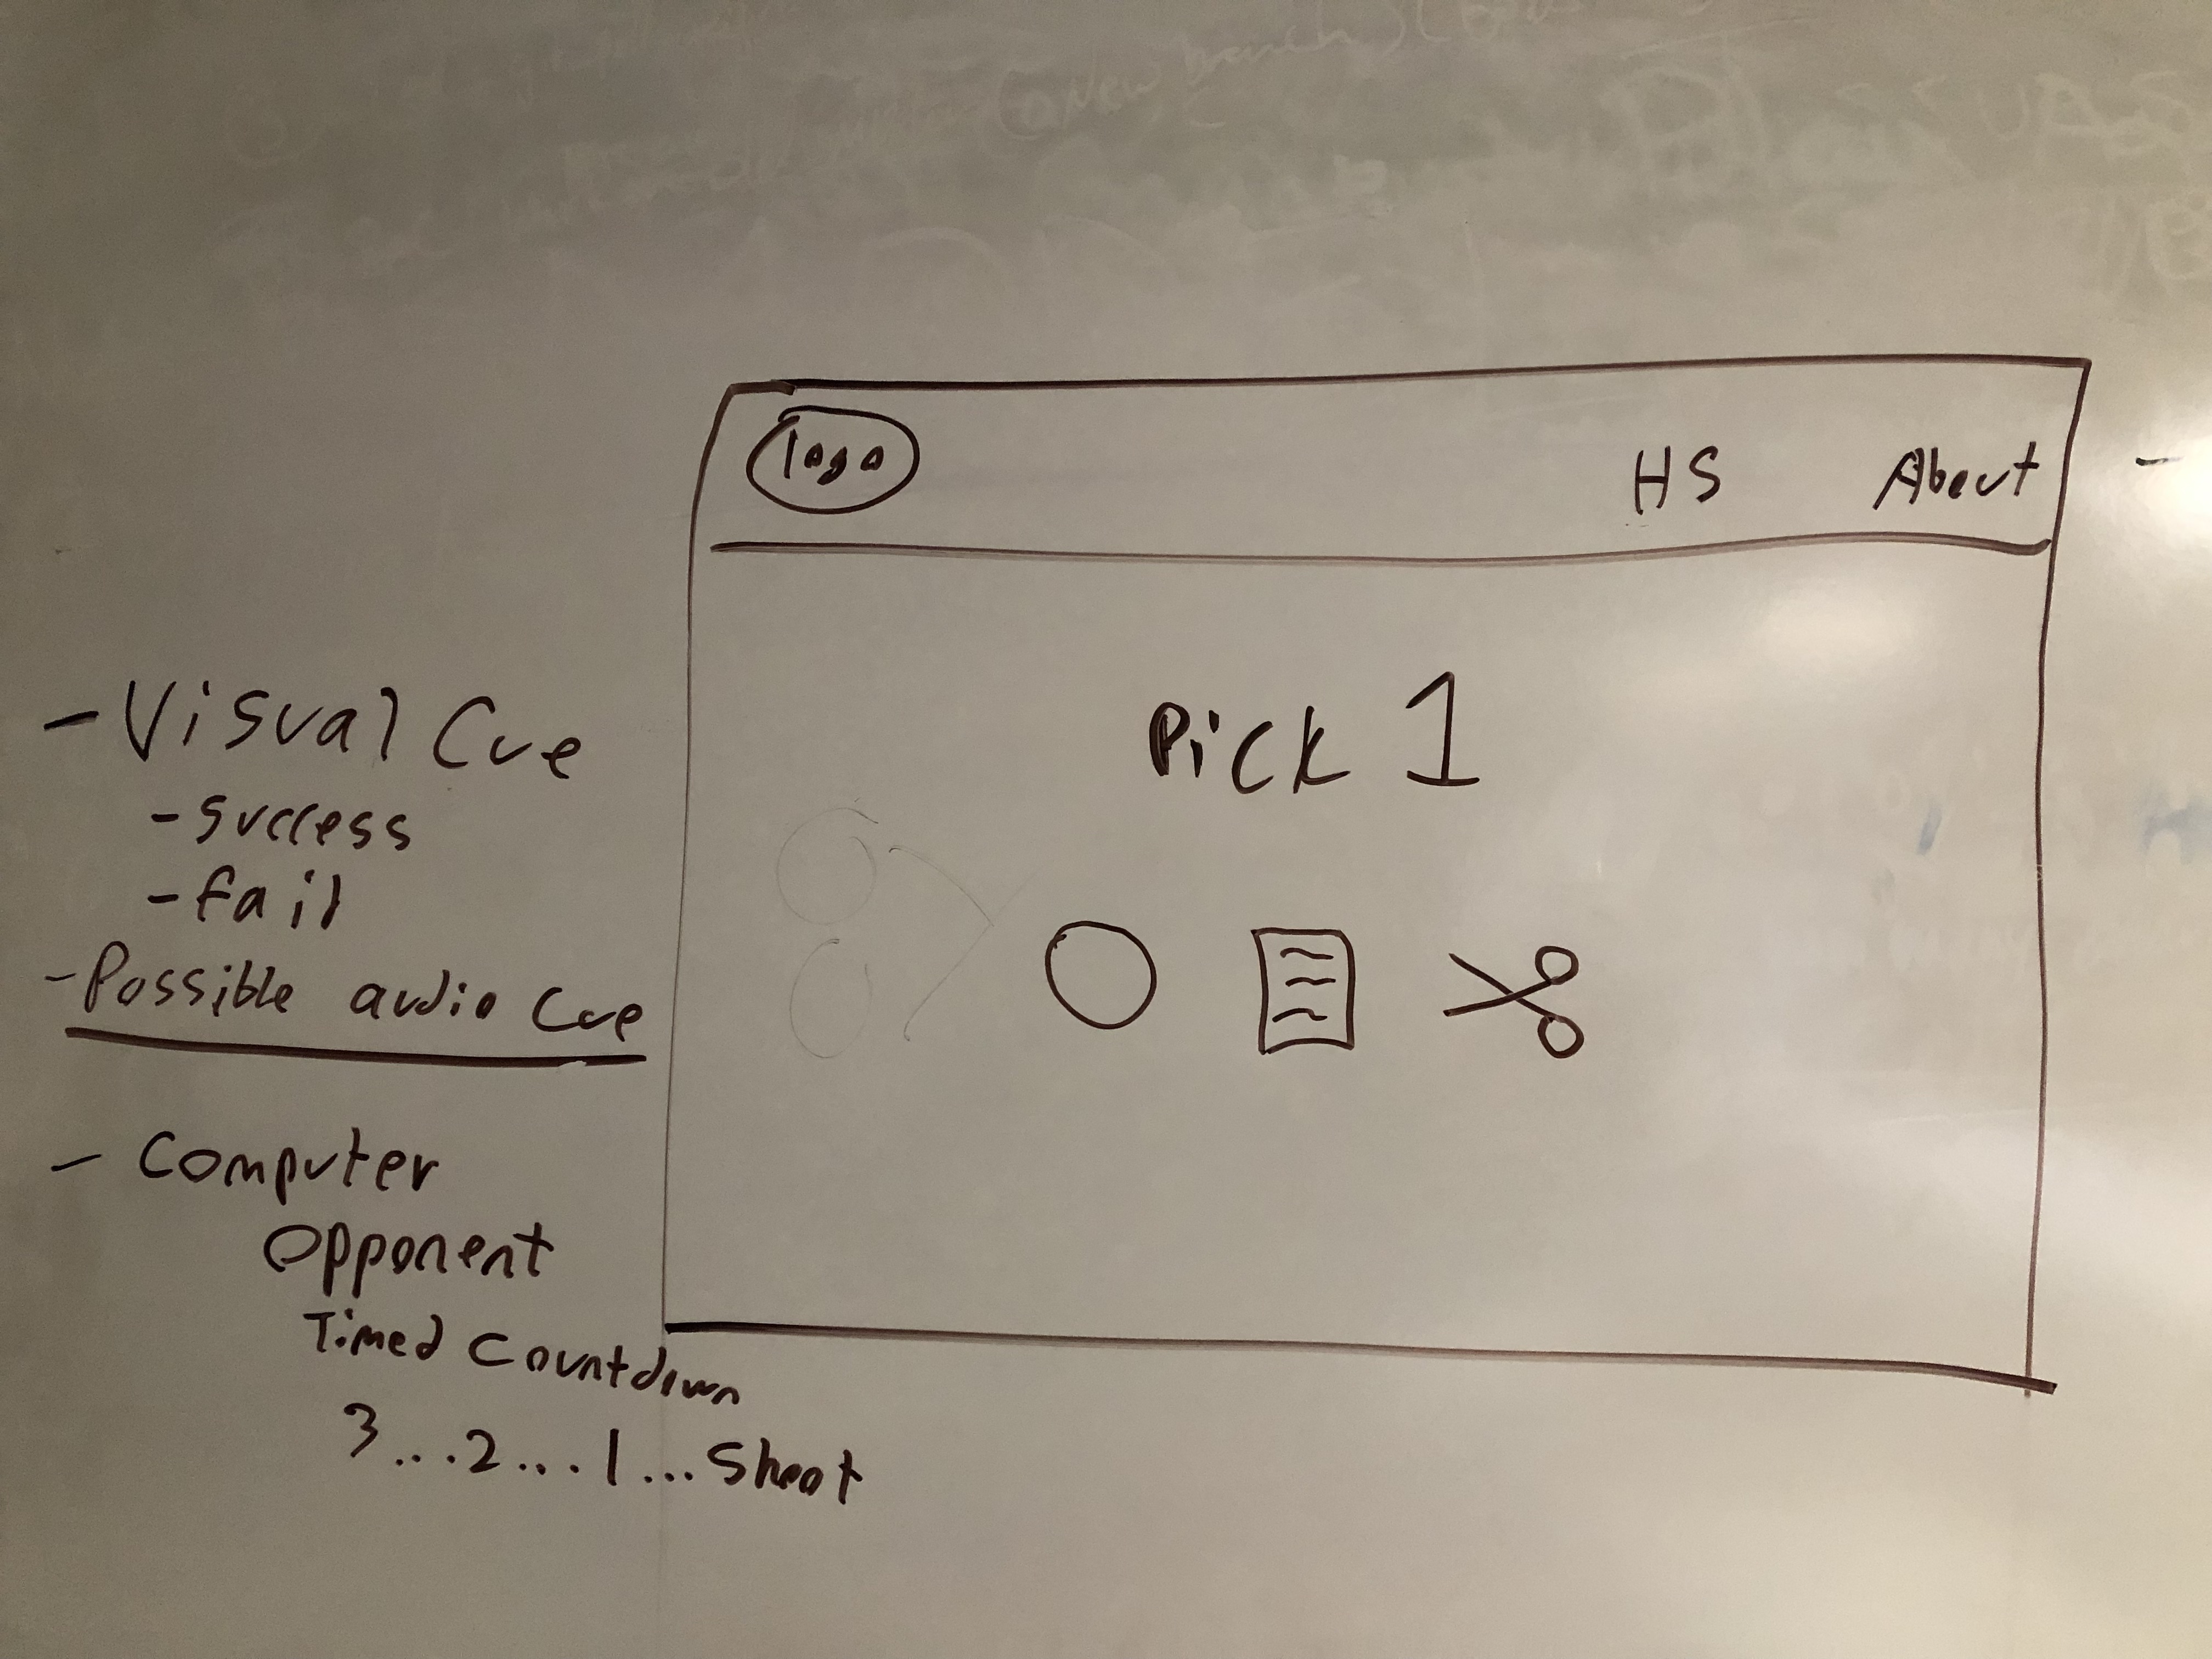 logo
HS
About
Pick 1
- Visual Cue
- success
- fail
- Possible audio Cue
- Computer
Opponent
Timed Countdown
3...2...1...Shoot
(New branch)